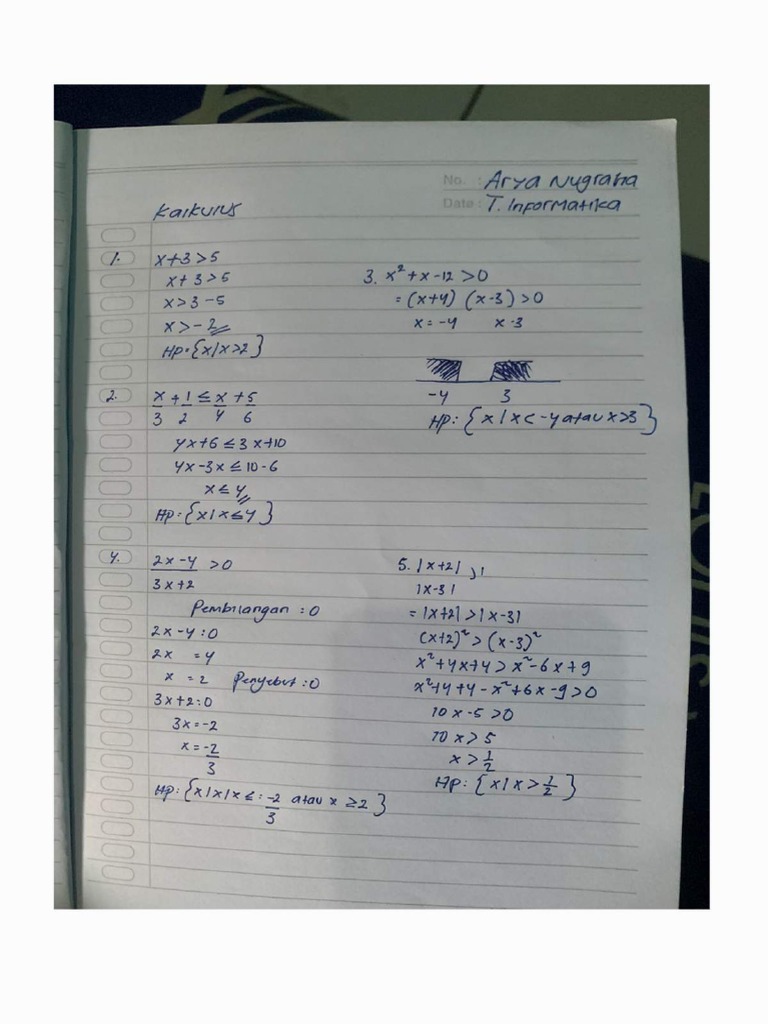 No. : Arya Nugraha
Date : T. Informatika
Kalkulus
1. x+3>5
x+3>5
x>3-5
x>-2
HP={x|x>2}
2. x/3 + 1/2 ≤ x/4 + 5/6
4x+6≤3x+10
4x-3x≤10-6
x≤4
HP={x|x≤4}
3. x²+x-12>0
=(x+4) (x-3)>0
x=-4 x-3
-4 3
HP: {x|x<-4 atau x>3}
4. 2x-4 >0
3x+2
Pembilangan : 0
2x-4:0
2x =4
x =2 Penyebut:0
3x+2:0
3x=-2
x=-2/3
HP:{x|x|x≤:-2/3 atau x ≥2}
5. |x+2|
|x-3|
=|x+2|>|x-3|
(x+2)²>(x-3)²
x²+4x+4>x²-6x+9
x²+4+4-x²+6x-9>0
10x-5>0
10x>5
x>1/2
HP: {x|x>1/2}